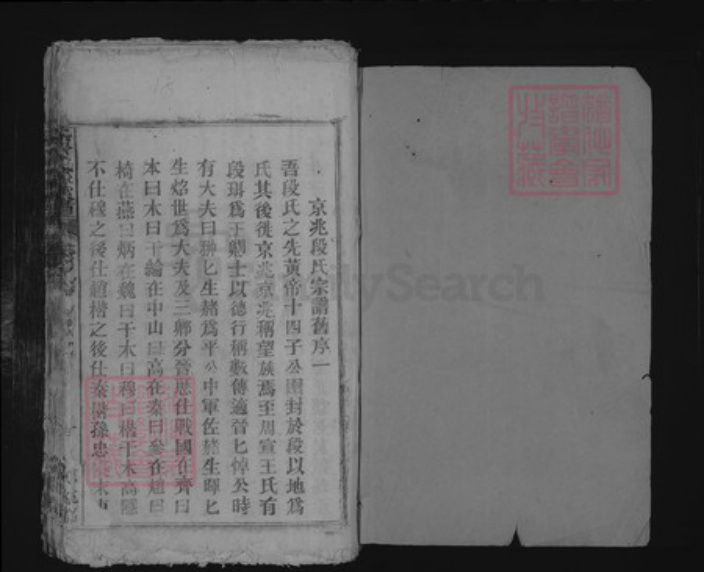 京兆段氏宗譜舊序一
吾段氏之先黃帝十四子公圖封於段以地為
氏其後徙京兆京兆稱望族焉至周宣王氏有
段珥為王卿士以德行稱數傳適晉匕悼公時
有大夫曰聨匕生赭為平公中軍佐赭生暉匕
生焰世為大夫及三卿分晉歷仕戰國在齊曰
本曰木曰干綸在中山曰高在秦曰參在趙曰
椅在燕曰炳在魏曰干木曰穆曰楷干木高隱
不仕穆之後仕趙楷之後仕秦階孫忠
MySearch